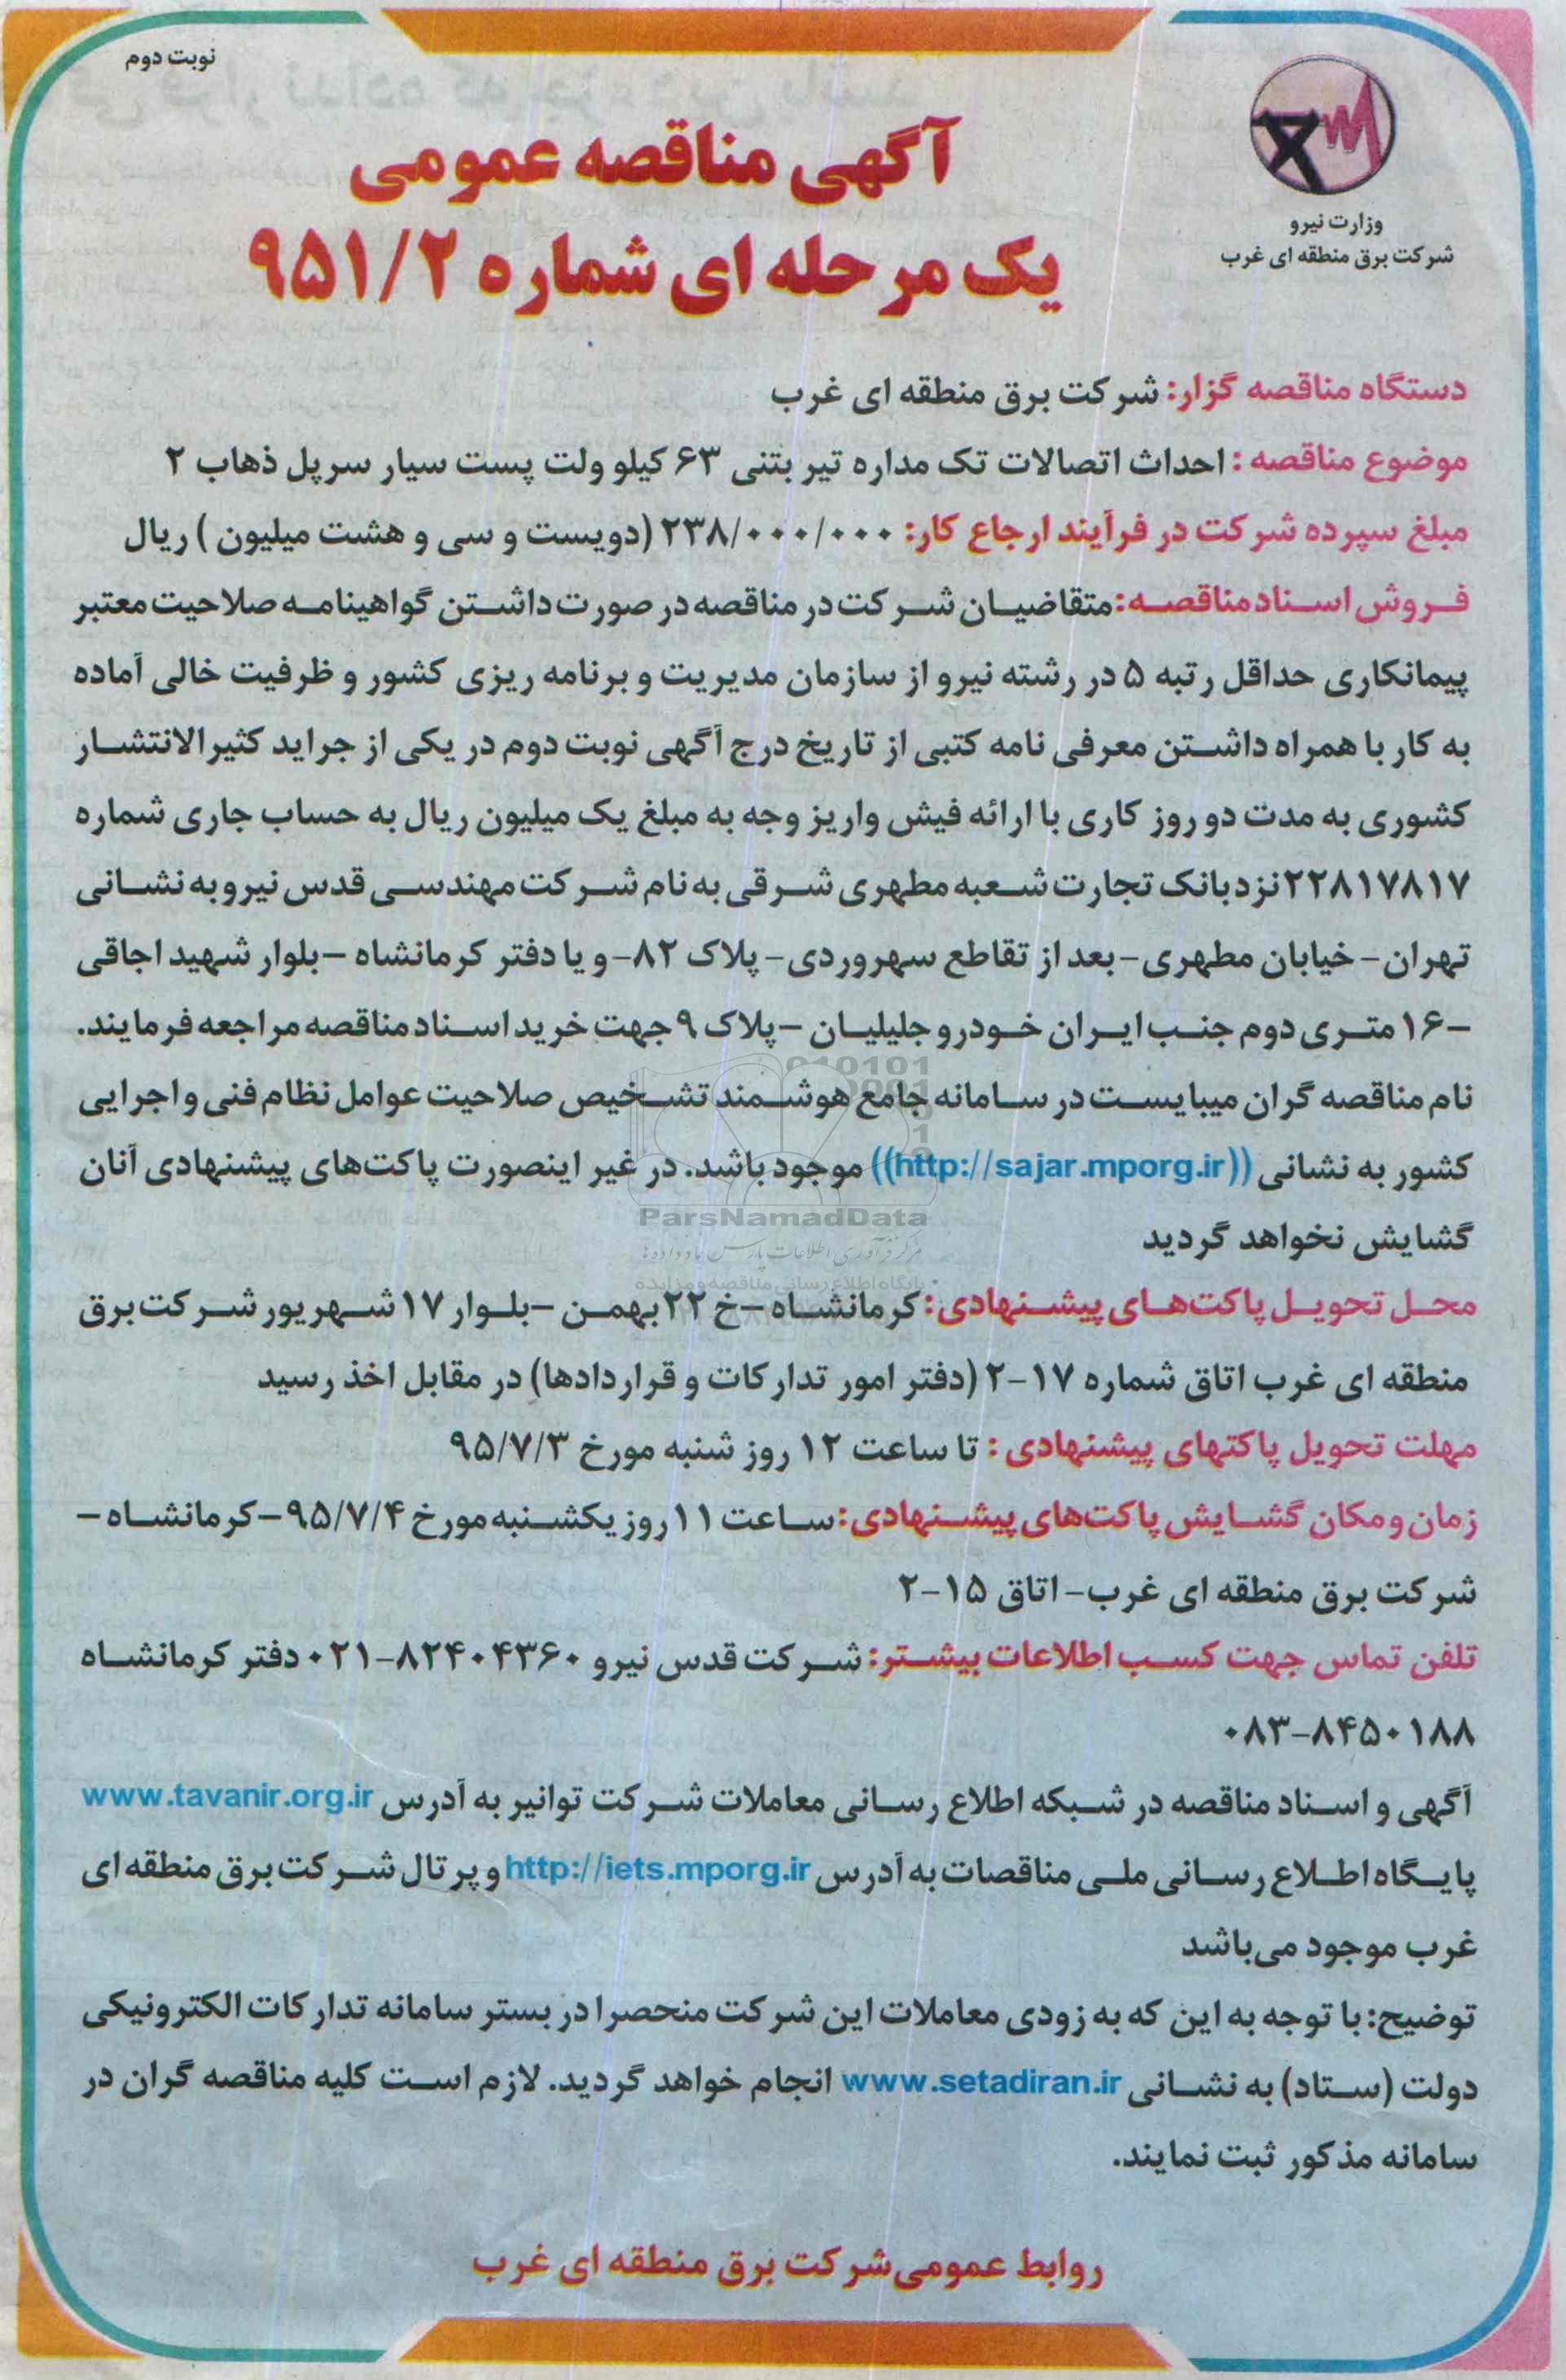 نوبت دوم
وزارت نیرو
شرکت برق منطقه ای غرب
آگهی مناقصه عمومی
یک مرحله ای شماره ۹۵۱/۲
دستگاه مناقصه گزار: شرکت برق منطقه ای غرب
موضوع مناقصه : احداث اتصالات تک مداره تیر بتنی ۶۳ کیلو ولت پست سیار سرپل ذهاب ۲
مبلغ سپرده شرکت در فرآیند ارجاع کار: ۲۳۸/۰۰۰/۰۰۰ (دویست و سی و هشت میلیون ) ریال
فروش اسناد مناقصه: متقاضیان شرکت در مناقصه در صورت داشتن گواهینامه صلاحیت معتبر
پیمانکاری حداقل رتبه ۵ در رشته نیرو از سازمان مدیریت و برنامه ریزی کشور و ظرفیت خالی آماده
به کار با همراه داشتن معرفی نامه کتبی از تاریخ درج آگهی نوبت دوم در یکی از جراید کثیرالانتشار
کشوری به مدت دو روز کاری با ارائه فیش واریز وجه به مبلغ یک میلیون ریال به حساب جاری شماره
۲۲۸۱۷۸۱۷ نزد بانک تجارت شعبه مطهری شرقی به نام شرکت مهندسی قدس نیرو به نشانی
تهران- خیابان مطهری- بعد از تقاطع سهروردی- پلاک ۸۲- و یا دفتر کرمانشاه –بلوار شهید اجاقی
–۱۶ متری دوم جنب ایران خودرو جلیلیان –پلاک ۹ جهت خرید اسناد مناقصه مراجعه فرمایند.
نام مناقصه گران میبایست در سامانه جامع هوشمند تشخیص صلاحیت عوامل نظام فنی و اجرایی
کشور به نشانی ((http://sajar.mporg.ir)) موجود باشد. در غیر اینصورت پاکت‌های پیشنهادی آنان
گشایش نخواهد گردید
ParsNamadData
مرکز فرآوری اطلاعات پارس نماد داده ها
پایگاه اطلاع رسانی مناقصه و مزایده
محل تحویل پاکت‌های پیشنهادی: کرمانشاه –خ ۲۲ بهمن –بلوار ۱۷ شهریور شرکت برق
منطقه ای غرب اتاق شماره ۱۷-۲ (دفتر امور تدارکات و قراردادها) در مقابل اخذ رسید
مهلت تحویل پاکتهای پیشنهادی : تا ساعت ۱۲ روز شنبه مورخ ۹۵/۷/۳
زمان و مکان گشایش پاکت‌های پیشنهادی: ساعت ۱۱ روز یکشنبه مورخ ۹۵/۷/۴ –کرمانشاه –
شرکت برق منطقه ای غرب- اتاق ۱۵-۲
تلفن تماس جهت کسب اطلاعات بیشتر: شرکت قدس نیرو ۸۲۴۰۴۳۶۰-۰۲۱ دفتر کرمانشاه
۰۸۳-۸۴۵۰۱۸۸
آگهی و اسناد مناقصه در شبکه اطلاع رسانی معاملات شرکت توانیر به آدرس www.tavanir.org.ir
پایگاه اطلاع رسانی ملی مناقصات به آدرس http://iets.mporg.ir و پرتال شرکت برق منطقه ای
غرب موجود می‌باشد
توضیح: با توجه به این که به زودی معاملات این شرکت منحصرا در بستر سامانه تدارکات الکترونیکی
دولت (ستاد) به نشانی www.setadiran.ir انجام خواهد گردید. لازم است کلیه مناقصه گران در
سامانه مذکور ثبت نمایند.
روابط عمومی شرکت برق منطقه ای غرب